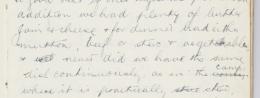 addition we had plenty of butter
jam & cheese & for dinner had either
mutton, beef or stew & vegetables
& never did we have the same
diet continuously, as in the camp
where it is practically, stew stew,